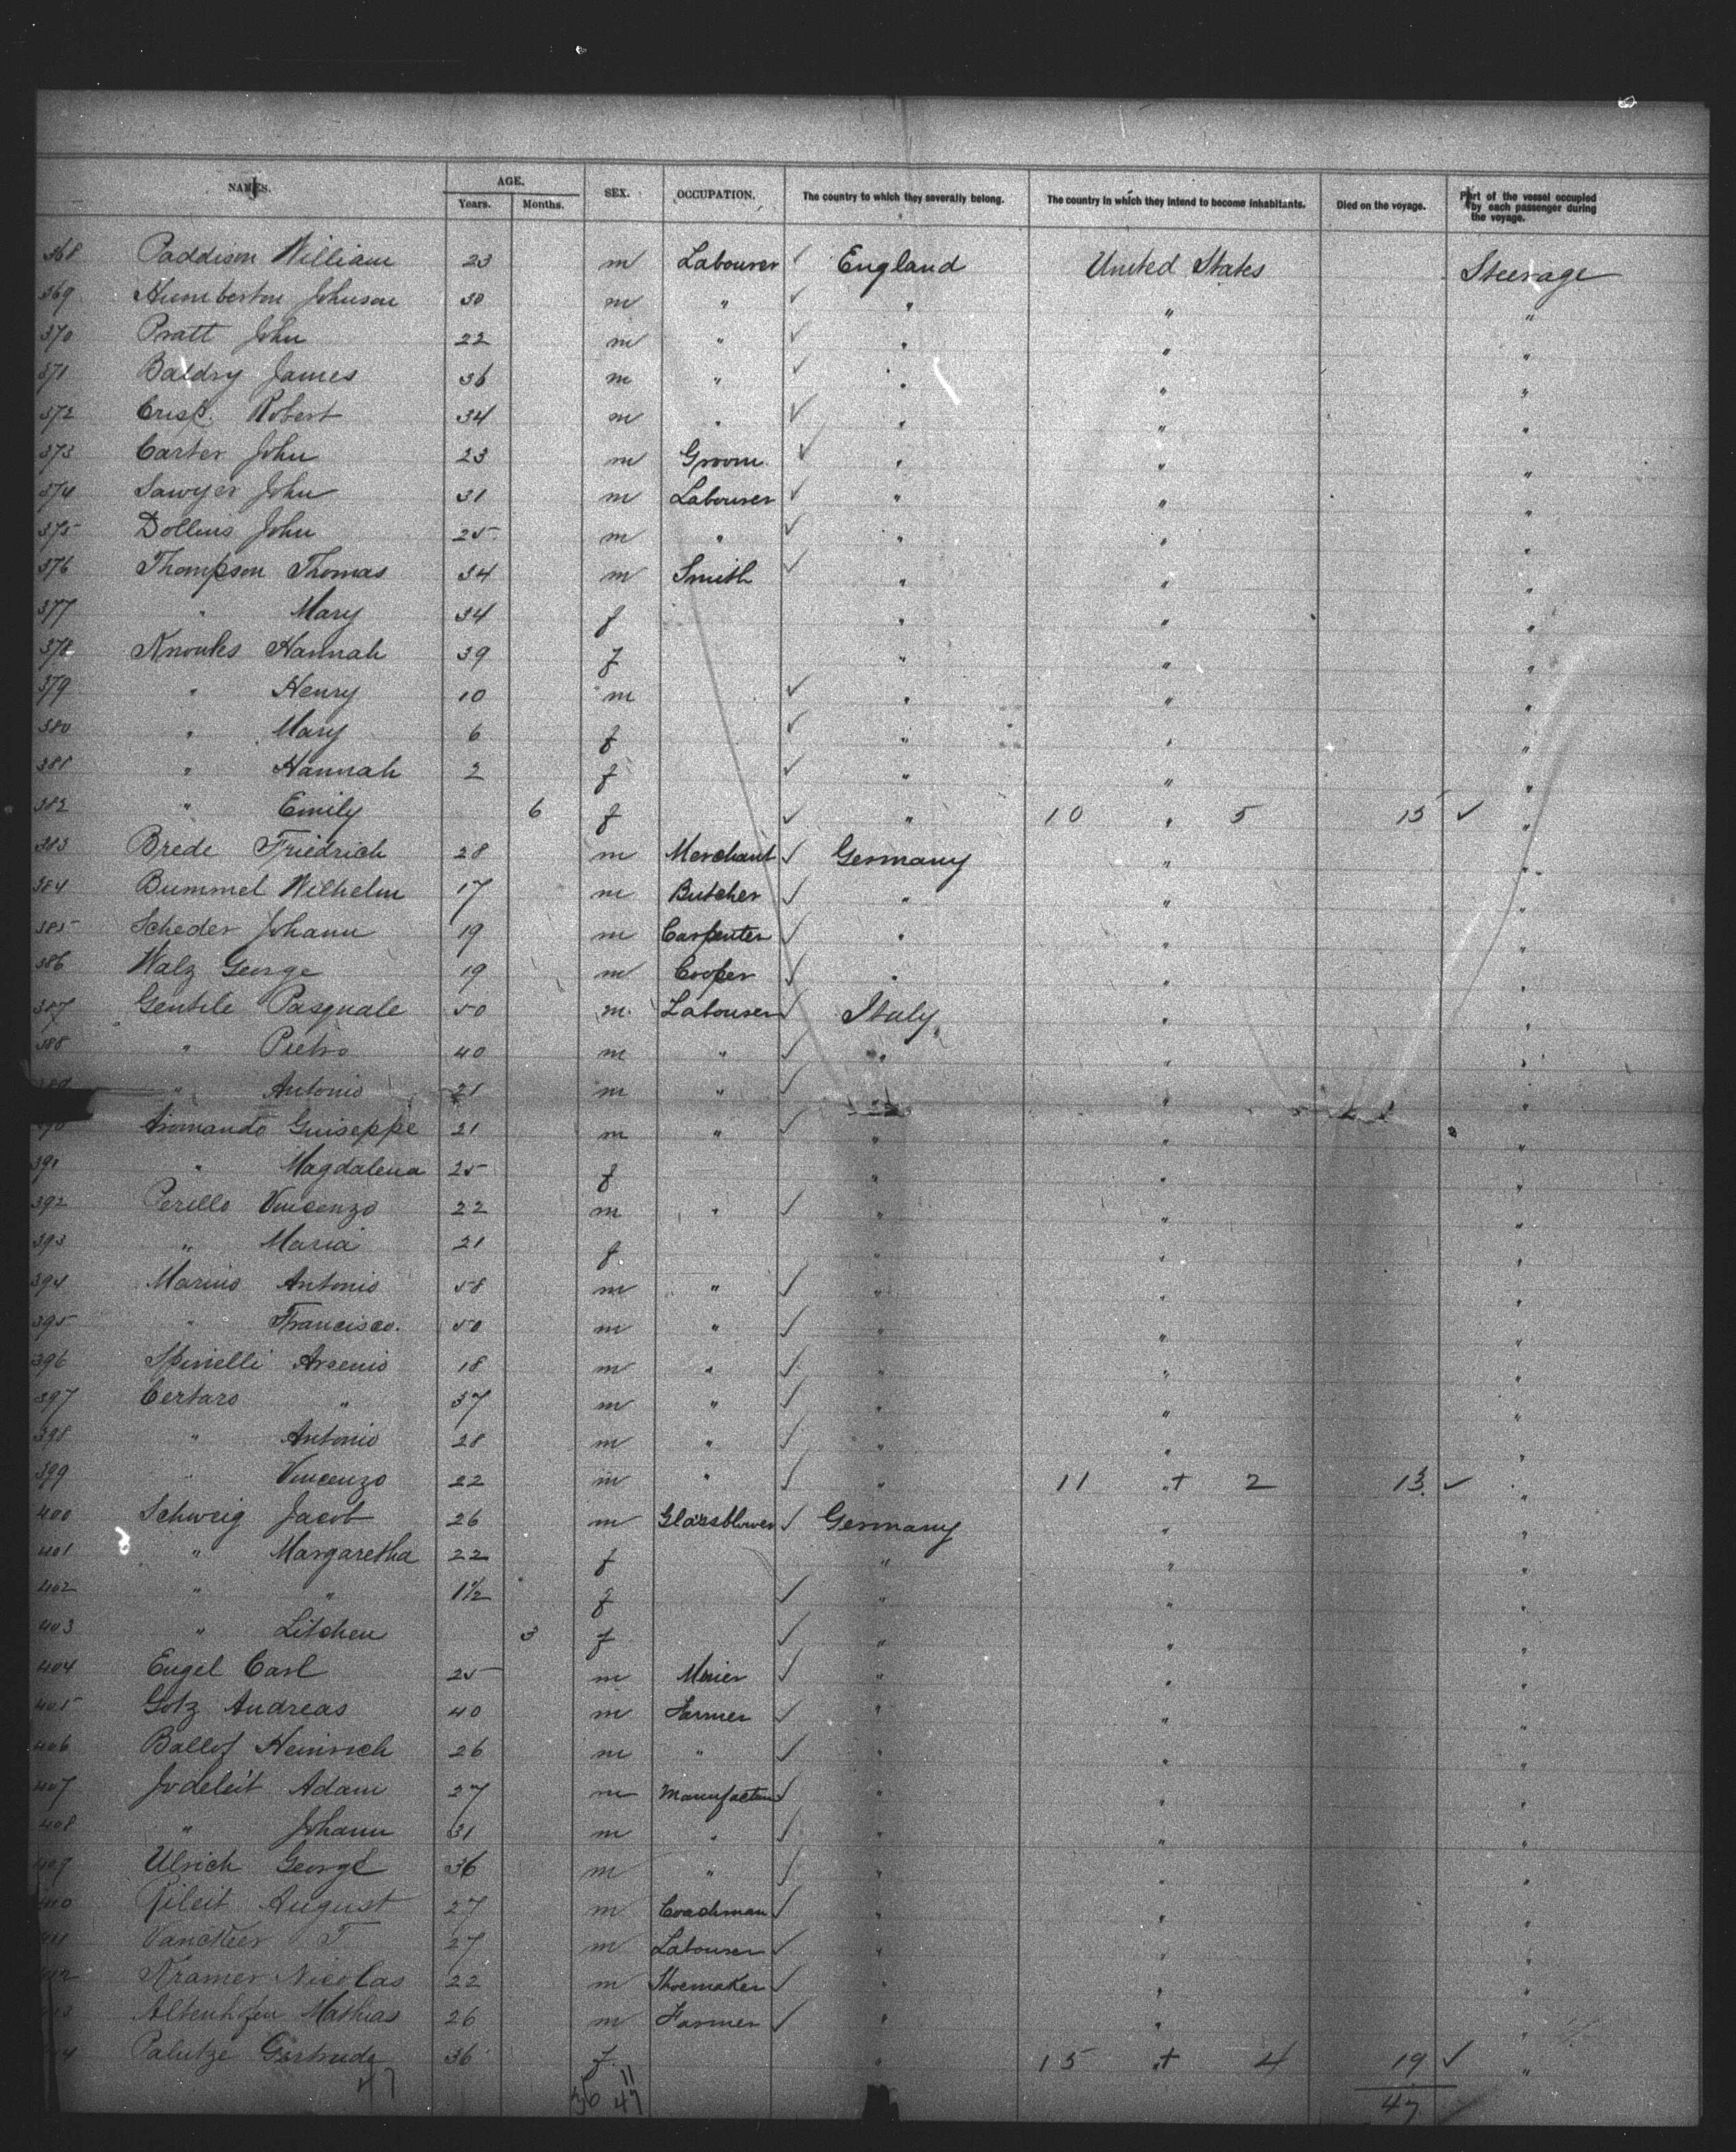 NAMES. AGE. SEX. OCCUPATION. The country to which they severally belong. The country in which they intend to become inhabitants. Died on the voyage. Part of the vessel occupied by each passenger during the voyage.
Years. Months.
368 Paddison William 23 m Labourer ✓ England United States Steerage
369 Humberton Johnson 30 m " ✓ " " "
370 Pratt John 22 m " ✓ " " "
371 Baldry James 36 m " ✓ " " "
372 Crisp Robert 34 m " ✓ " " "
373 Carter John 23 m Groom ✓ " " "
374 Sawyer John 31 m Labourer ✓ " " "
375 Dollins John 25 m " ✓ " " "
376 Thompson Thomas 34 m Smith ✓ " " "
377 " Mary 34 f " " "
378 Knowles Hannah 39 f " " "
379 " Henry 10 m ✓ " " "
380 " Mary 6 f ✓ " " "
381 " Hannah 2 f ✓ " " "
382 " Emily 6 f ✓ " 10 " 5 15 ✓ "
383 Brede Friedrich 28 m Merchant ✓ Germany " "
384 Bummel Wilhelm 17 m Butcher ✓ " " "
385 Scheder Johann 19 m Carpenter ✓ " " "
386 Walz George 19 m Cooper ✓ " " "
387 Gentile Pasquale 50 m Labourer ✓ Italy " "
388 " Pietro 40 m " ✓ " " "
389 " Antonio 21 m " ✓ " " "
390 Guiseppe 21 m " ✓ " " "
391 " Magdalena 25 f " " "
392 Perillo Vincenzo 22 m " ✓ " " "
393 " Maria 21 f " " "
394 Marino Antonio 58 m " ✓ " " "
395 " Francisco. 50 m " ✓ " " "
396 Spinelli Arsenio 18 m " ✓ " " "
397 Certaro " 37 m " ✓ " " "
398 " Antonio 28 m " ✓ " " "
399 " Vincenzo 22 m " ✓ " 11 "+ 2 13 ✓ "
400 Schweig Jacob 26 m Glassblower ✓ Germany " "
401 " Margaretha 22 f " " "
402 " " 1½ f ✓ " " "
403 " Litchen 3 f ✓ " " "
404 Engel Carl 25 m Miner ✓ " " "
405 Götz Andreas 40 m Farmer ✓ " " "
406 Ballof Heinrich 26 m " ✓ " " "
407 Jodeleit Adam 27 m Manufacturer ✓ " " "
408 " Johann 31 m " ✓ " " "
409 Ulrich George 36 m " ✓ " " "
410 August 27 m Coachman ✓ " " "
411 T 27 m Labourer ✓ " " "
412 Kramer Nicolas 22 m Shoemaker ✓ " " "
413 Altenhofen Mathias 26 m Farmer ✓ " " "
414 Palutze Gertrude 36 f " 15 "+ 4 19 ✓ "
47 36 11 47 47